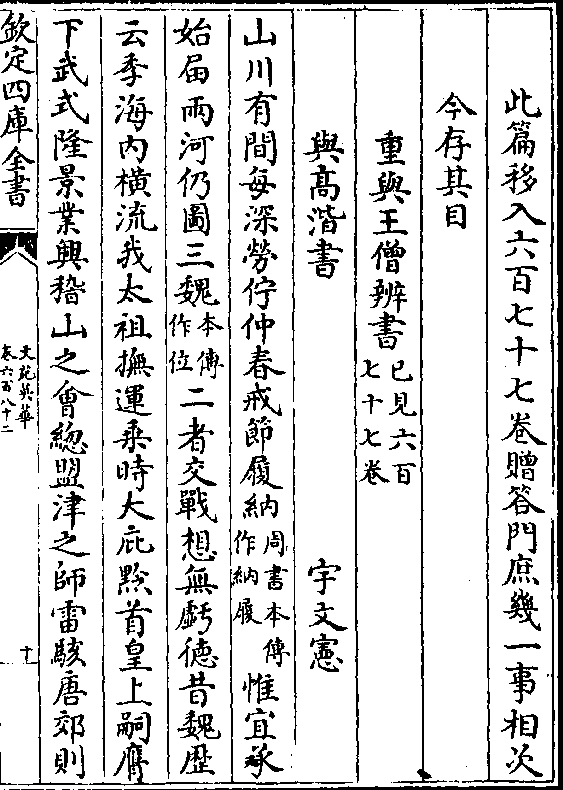 此篇移入六百七十七卷贈答門庶幾一事相次
今存其目
重與王僧辨書已見六百七十七卷
與高湝書　宇文憲
山川有間每深勞佇仲春戒節履納周書本傳作納履惟宜承
始届兩河仍圖三魏本傳作位二者交戰想無虧徳昔魏歴
云季海内横流我太祖撫運乗時大庇黔首皇上嗣膺
下武式隆景業興稽山之會緫盟津之師雷駭唐郊則
欽定四庫全書
文苑英華
卷六百八十二
十